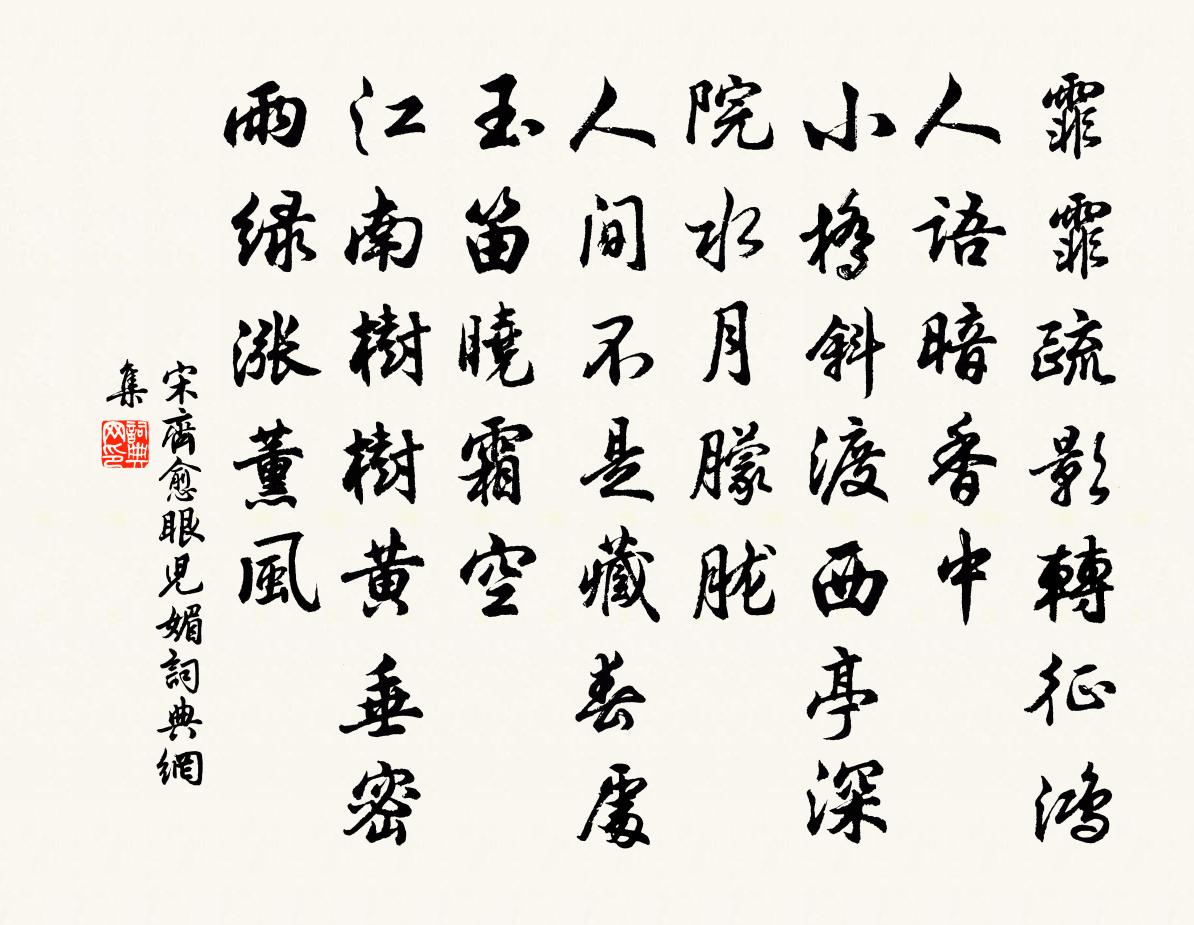 霏霏疏影轉征鴻
人語暗香中
小橋斜渡西亭深
院水月朦朧
人間不是藏春處
玉笛曉霜空
江南樹樹黄垂密
雨緑漲薰風
宋齊愈眼兒媚詞典網
集
詞典網印